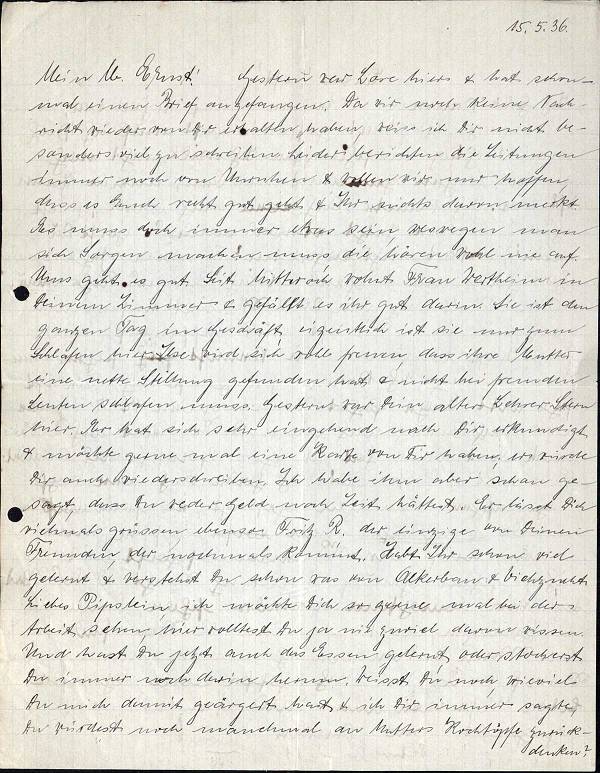 15.5.36.
Mein lb. Ernst! Gestern war Lore hier & hat schon
mal einen Brief angefangen. Da wir noch keine Nach-
richt wieder von Dir erhalten haben, weiss ich Dir nicht be-
sonders viel zu schreiben. Leider berichten die Zeitungen
immer noch von Unruhen & wollen wir nur hoffen,
dass es Euch recht gut geht & Ihr nichts davon merkt.
Es muss doch immer etwas sein, weswegen man
sich Sorgen machen muss, die hören wohl nie auf.
Uns geht es gut. Seit Mittwoch wohnt Frau Wertheim in
Deinem Zimmer & gefällt es ihr gut darin. Sie ist den
ganzen Tag im Geschäft, eigentlich ist sie nur zum
Schlafen hier. Ilse wird sich wohl freuen, dass ihre Mutter
eine nette Stellung gefunden hat & nicht bei fremden
Leuten schlafen muss. Gestern war Dein alter Lehrer Stern
hier. Er hat sich sehr eingehend nach Dir erkundigt
& möchte gerne mal eine Karte von Dir haben, er würde
Dir auch wiederschreiben. Ich habe ihm aber schon ge-
sagt, dass Du weder Geld noch Zeit hättest. Er lässt Dich
vielmals grüssen ebenso Fritz R. der einzige von Deinen
Freunden, der nochmals kommt. Habt Ihr schon viel
gelernt & verstehst Du schon was von Ackerbau & Viehzucht
Liebes Pipslein, ich möchte Dich so gerne mal bei der
Arbeit sehen, hier wolltest Du ja nie zuviel davon wissen.
Und hast Du jetzt auch das Essen gelernt, oder stocherst
Du immer noch darin herum. Weisst Du noch, wieviel
Du mich damit geärgert hast & ich Dir immer sagte,
Du würdest noch manchmal an Mutters Kochtöpfe zurück-
denken?